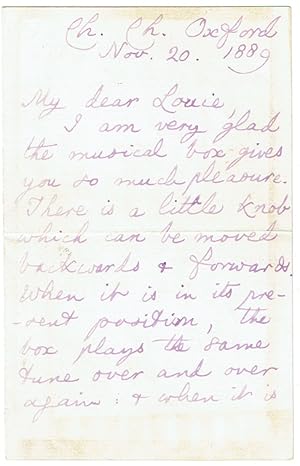 Ch. Ch. Oxford
Nov. 20. 1889
My dear Louie,
I am very glad
the musical box gives
you so much pleasure.
There is a little knob
which can be moved
backwards & forwards.
When it is in its pre-
-sent position, the
box plays the same
tune over and over
again: & when it is